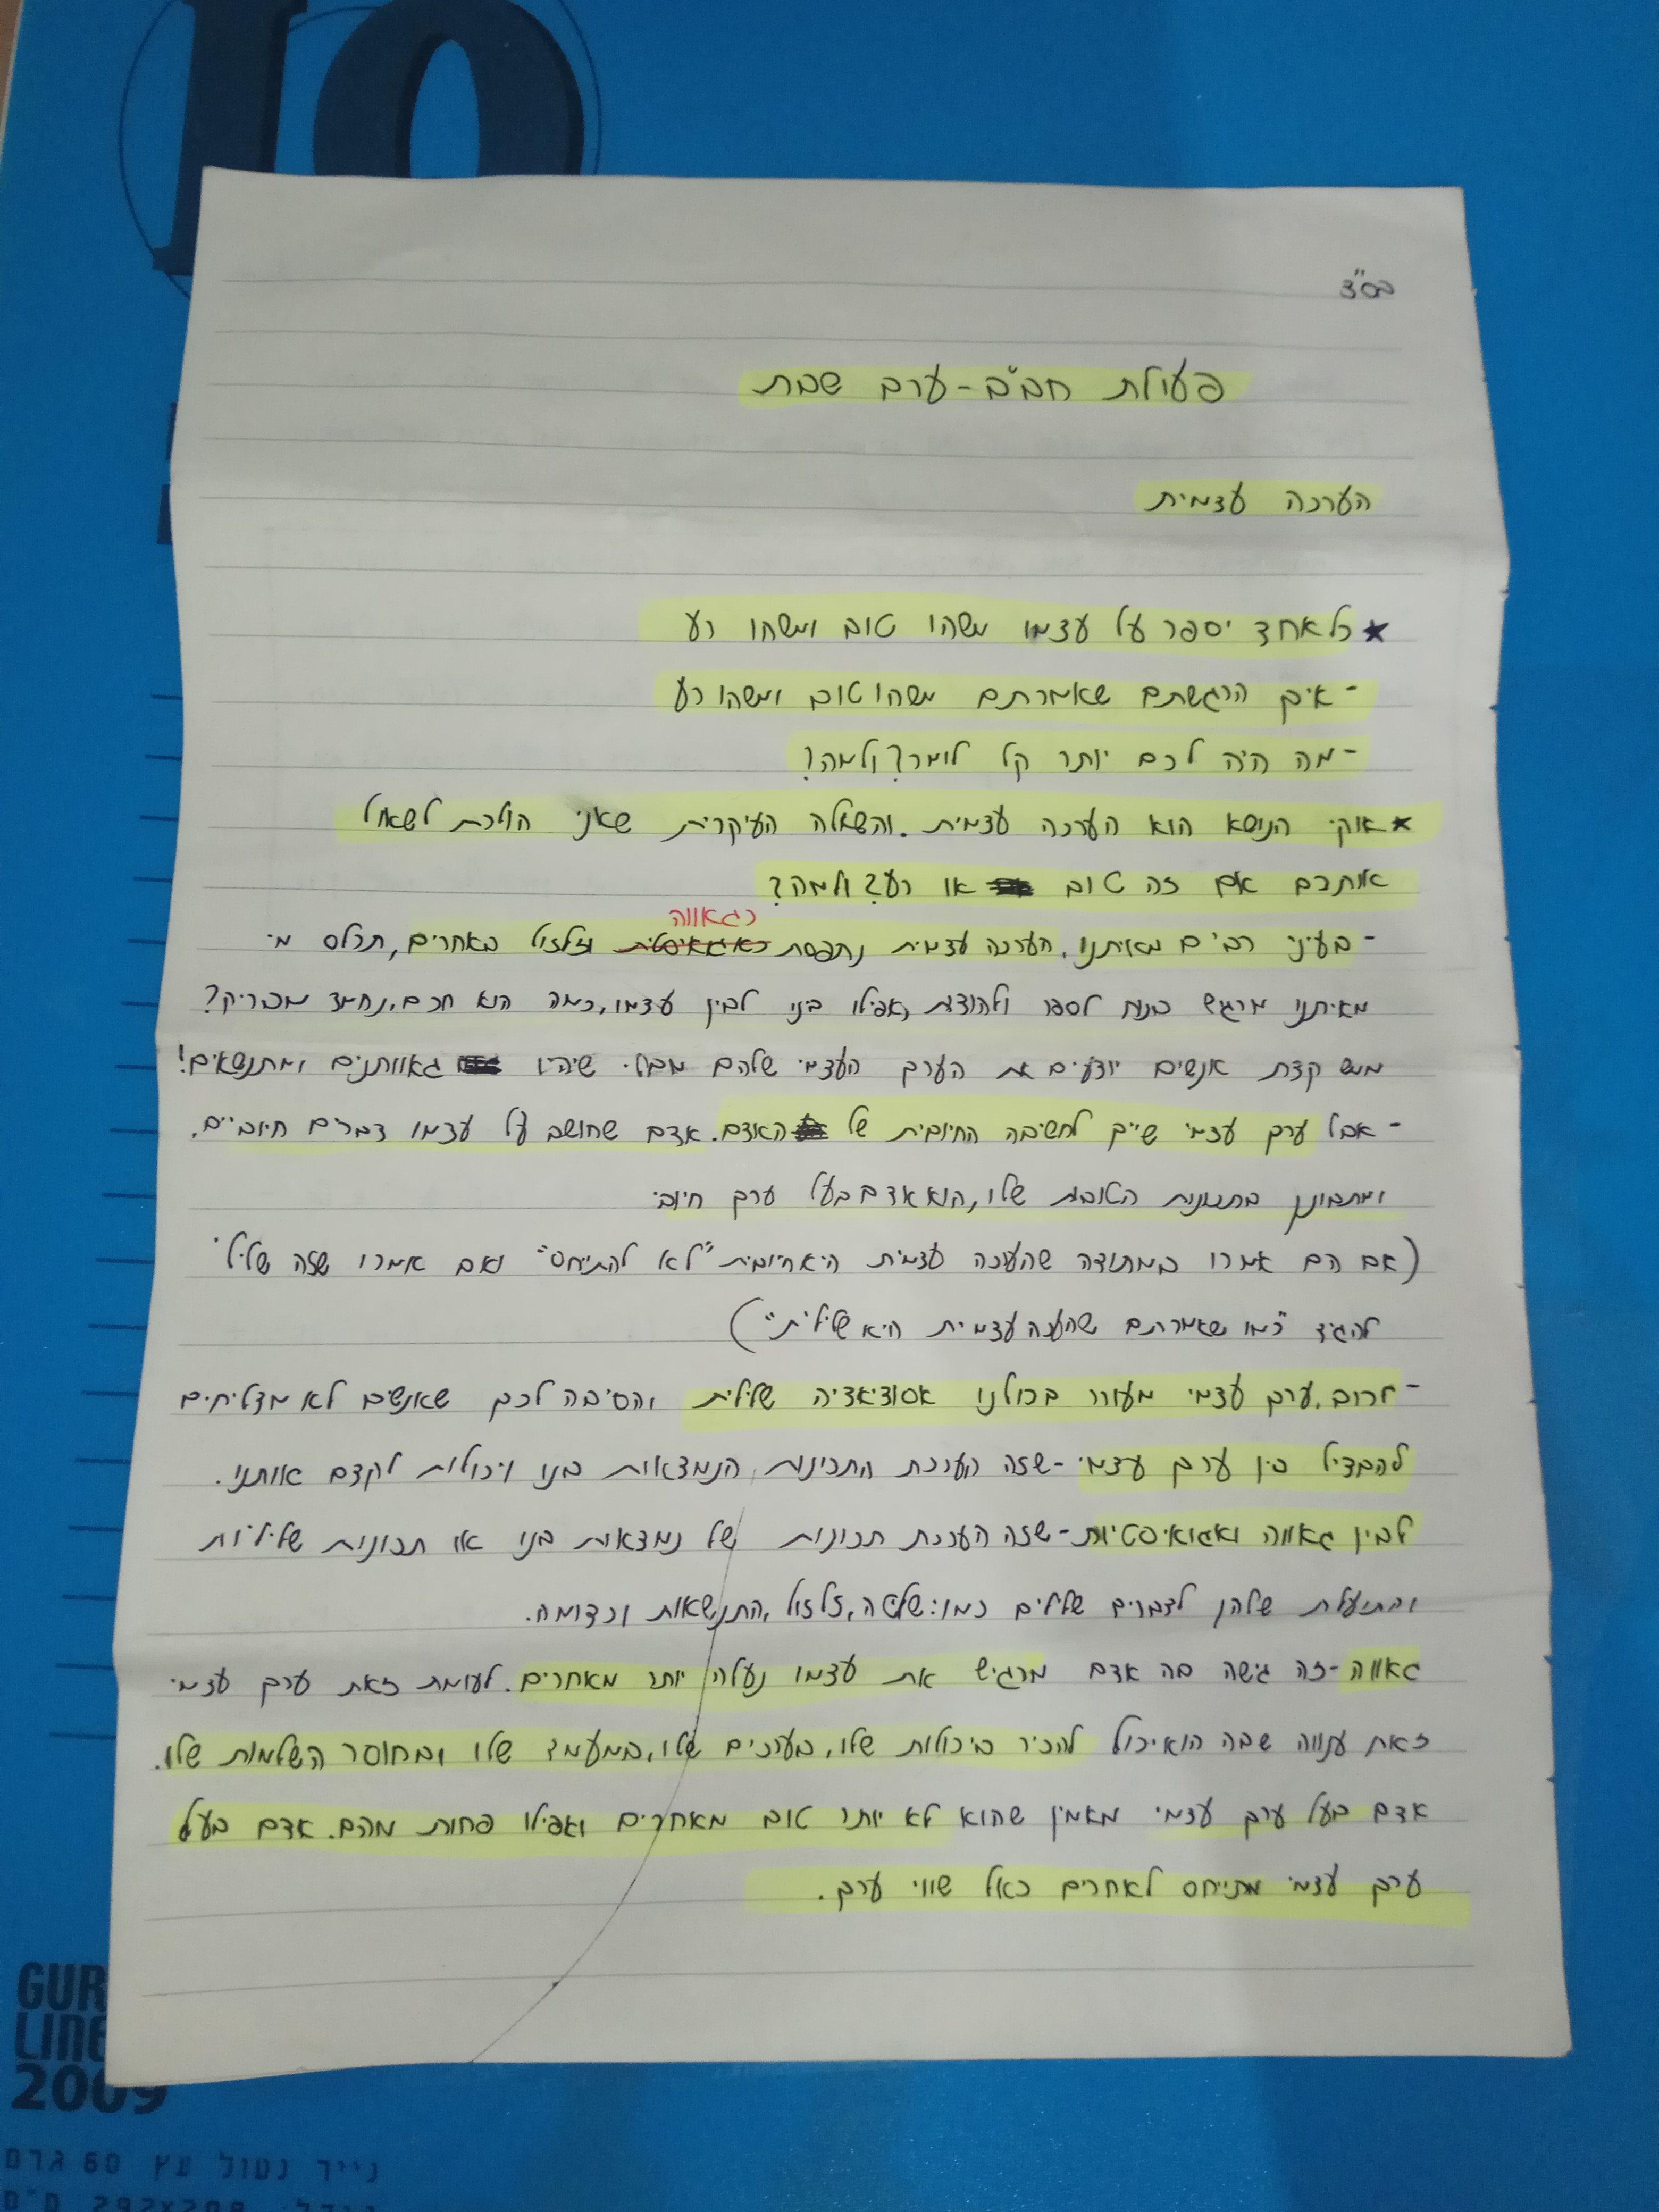 10
בס"ד
פעולת חב"ב - ערב שבת
הערכה עצמית
★ כל אחד יספר על עצמו משהו טוב ומשהו רע
- איך הרגשתם שאמרתם משהו טוב ומשהו רע
- מה היה לכם יותר קל לומר? ולמה?
★ אוקי הנושא הוא הערכה עצמית. והשאלה העיקרית שאני הולכת לשאול
אותכם אם זה טוב או רע? ולמה?
כגאווה
- בעיני רבים מאיתנו, הערכה עצמית נתפסת כאגואיסטית וזלזול באחרים, תכלס מי
מאיתנו מרגיש בנוח לספר ולהודות, אפילו ביני לבין עצמו, כמה הוא חכם, נחמד מבריק?
ממש קצת אנשים יודעים את הערך העצמי שלהם מבלי שיהיו גאוותנים ומתנשאים!
- אבל ערך עצמי שייך לחשיבה החיובית של האדם. אדם שחושב על עצמו דברים חיוביים,
ומתבונן בתכונות הטובות שלו, הוא אדם בעל ערך חיובי
(אם הם אמרו במתודה שהערכה עצמית היא חיובית "לא להתייחס" ואם אמרו שזה שלילי
להגיד "כמו שאמרתם שהערכה עצמית היא שלילית")
- לרוב, ערך עצמי מעורר בכולנו אסוציאציה שלילית, והסיבה לכך שאנשים לא מצליחים
להבדיל בין ערך עצמי - שזה הערכת התכונות הנמצאות בנו ויכולות לקדם אותנו.
לבין גאווה ואגואיסטיות - שזה הערכת תכונות של נמצאות בנו או תכונות שליליות
והתועלת שלהן לדברים שליליים כמו: שליטה, זלזול, התנשאות וכדומה.
גאווה - זה גישה בה אדם מרגיש את עצמו נעלה יותר מאחרים. לעומת זאת ערך עצמי
זאת ענווה שבה הוא יכול להכיר ביכולות שלו, בערכים שלו, במעמד שלו ובחוסר השלמות שלו.
אדם בעל ערך עצמי מאמין שהוא לא יותר טוב מאחרים ואפילו פחות מהם. אדם בעל
ערך עצמי מתייחס לאחרים כאל שווי ערך.
GUR
LINE
2009
נייר נטול עץ 60 גרם